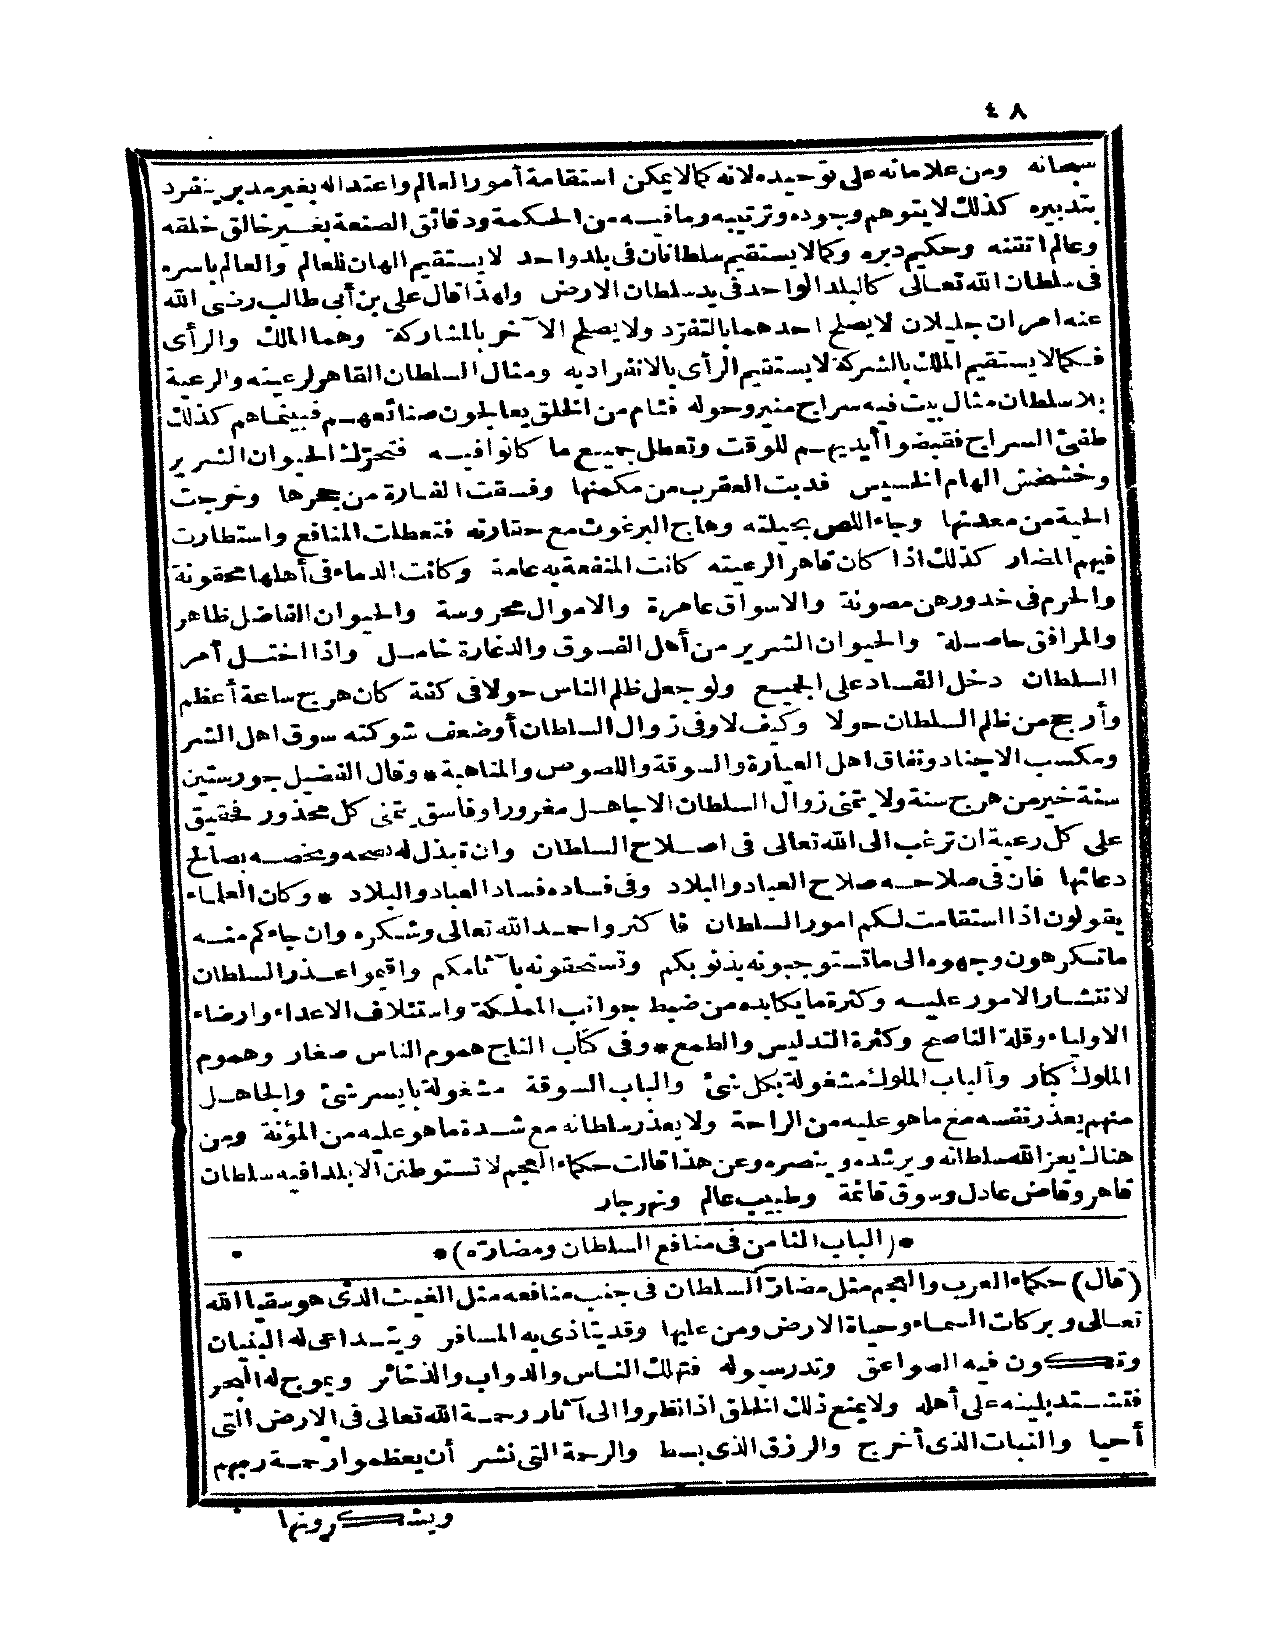 ٤٨
سبحانه ومن علاماته على توحيده لانه كما لا يمكن استقامة أمور العالم واعتداله بغير مدبر ينفرد
بتدبيره كذلك لا يتوهم وجوده وترتيبه وما فيه من الحكمة ودقائق الصنعة بغير خالق خلقه
وعالم اتقنه وحكيم دبره وكما لا يستقيم سلطانان فى بلد واحد لا يستقيم الهان للعالم والعالم باسره
فى سلطان الله تعالى كالبلد الواحد فى يد سلطان الارض ولهذا قال على بن أبى طالب رضى الله
عنه امران جليلان لا يصلح احدهما بالتفرد ولا يصلح الآخر بالمشاركة وهما الملك والرأى
فكما لا يستقيم الملك بالشركة لا يستقيم الرأى بالانفراد به ومثال السلطان القاهر لرعيته والرعية
بلا سلطان مثال بيت فيه سراج منير وحوله فئام من الخلق يعالجون صنائعهم فبينماهم كذلك
طفئ السراج فقبضوا أيديهم للوقت وتعطل جميع ما كانوا فيه فتحرك الحيوان الشرير
وخشخش الهام الخسيس فدبت العقرب من مكمنها وفسقت الفارة من جحرها وخرجت
الحية من معدنها وجاء اللص بحيلته وهاج البرغوث مع حقارته فتعطلت المنافع واستطارت
فيهم المضار كذلك اذا كان قاهر الرعيته كانت المنفعة به عامة وكانت الدماء فى أهلها محقونة
والحرم فى خدورهن مصونة والاسواق عامرة والاموال محروسة والحيوان الفاضل ظاهر
والمرافق حاصلة والحيوان الشرير من أهل الفسوق والدعارة خامل واذا اختل أمر
السلطان دخل الفساد على الجميع ولو جعل ظلم الناس حولا فى كفة كان هرج ساعة أعظم
وأرجح من ظلم السلطان حولا وكيف لا وفى زوال السلطان أو ضعف شوكته سوق اهل الشر
ومكسب الاجناد ونفاق اهل العيارة والسوقة واللصوص والمناهبة * وقال الفضيل جور ستين
سنة خير من هرج سنة ولا يتمنى زوال السلطان الا جاهل مغرور او فاسق يتمنى كل محذور فحقيق
على كل رعية ان ترغب الى الله تعالى فى اصلاح السلطان وان تبذل له نصحه وتخصه بصالح
دعائها فان فى صلاحه صلاح العباد والبلاد وفى فساده فساد العباد والبلاد * وكان العلماء
يقولون اذا استقامت لكم امور السلطان فاكثروا حمد الله تعالى وشكره وان جاءكم منه
ما تكرهون وجهوه الى ما تستوجبونه بذنوبكم وتستحقونه بآثامكم واقيموا عذر السلطان
لانتشار الامور عليه وكثرة ما يكابده من ضبط جوانب المملكة واستئلاف الاعداء وارضاء
الاولياء وقلة الناصح وكثرة التدليس والطمع * وفى كتاب التاج هموم الناس صغار وهموم
الملوك كبار وألباب الملوك مشغولة بكل شئ والباب السوقة مشغولة بايسر شئ والجاهل
منهم يعذر نفسه مع ما هو عليه من الراحة ولا يعذر سلطانه مع شدة ما هو عليه من المؤنة ومن
هناك يعز الله سلطانه ويرشده وينصره وعن هذا قالت حكماء العجم لا تستوطنن الا بلدا فيه سلطان
قاهر وقاض عادل وسوق قائمة وطبيب عالم ونهر جار
*(الباب الثامن فى منافع السلطان ومضاره)*
(قال) حكماء العرب والعجم مثل مضار السلطان فى جنب منافعه مثل الغيث الذى هو سقيا الله
تعالى وبركات السماء وحياة الارض ومن عليها وقد يتاذى به المسافر ويتداعى له البنيان
وتكون فيه الصواعق وتدر سيوله فتهلك الناس والدواب والذخائر ويموج له البحر
فتشتد بليته على أهله ولا يمنع ذلك الخلق اذا نظروا الى آثار رحمة الله تعالى فى الارض التى
أحيا والنبات الذى أخرج والرزق الذى بسط والرحمة التى نشر أن يعظموا رحمة ربهم
ويشكرونها